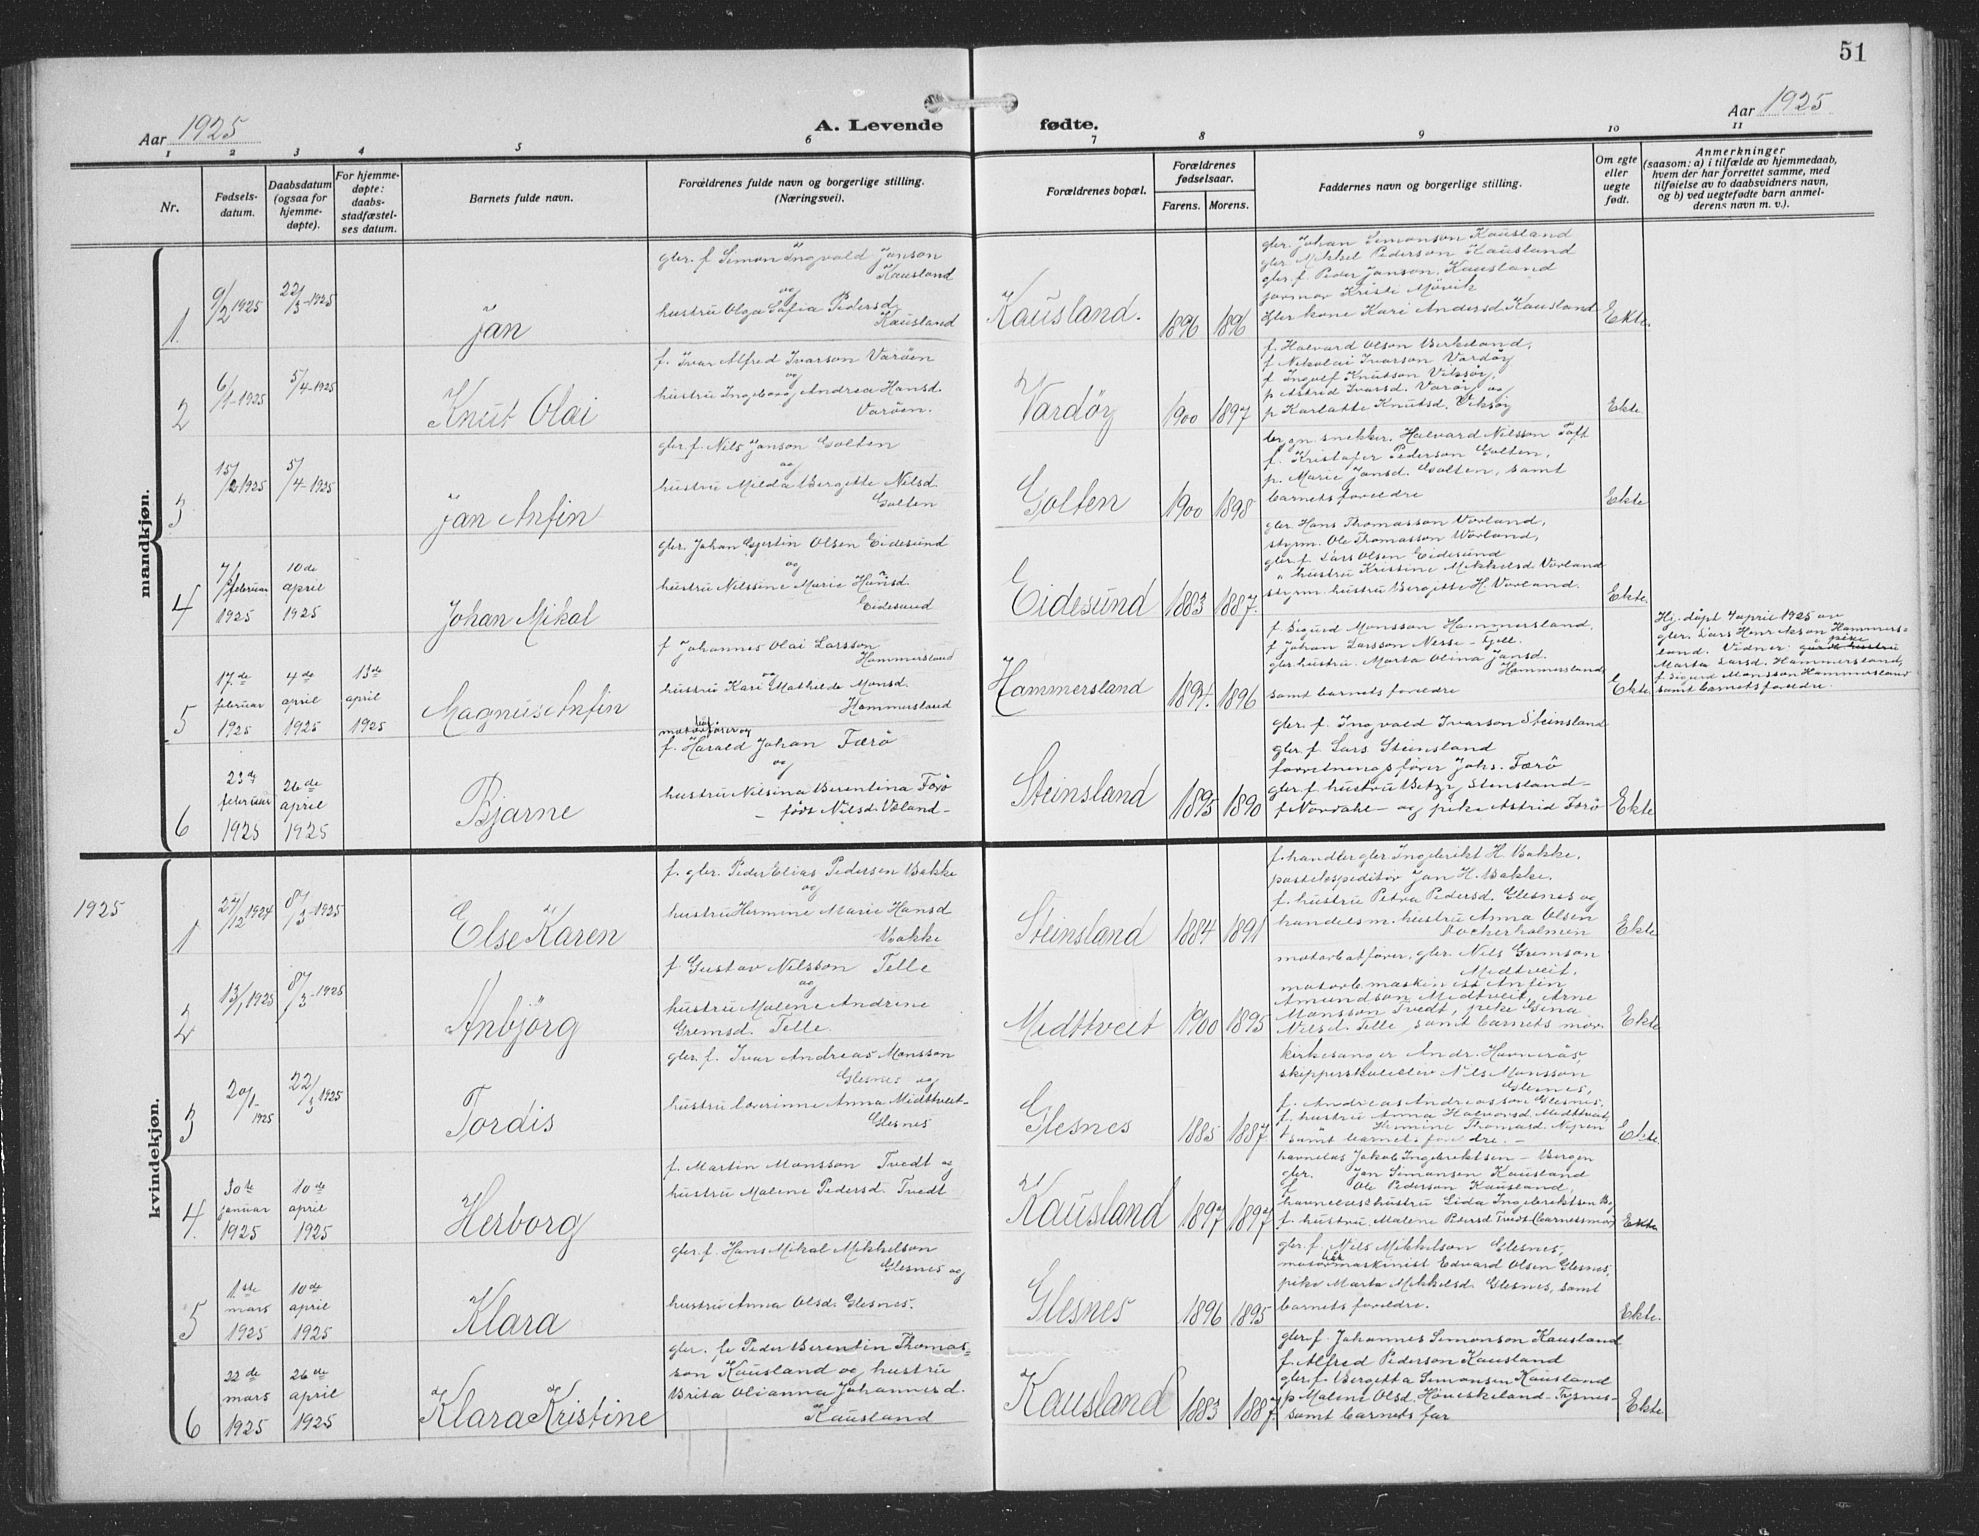 51
Aar 1925
A. Levende fødte.
Aar 1925
1 2 3 4 5 6 7 8 9 10 11
Nr.
Fødsels-
datum.
Daabsdatum
(ogsaa for
hjemme-
døpte).
For hjemme-
døpte:
daabs-
stadfæstel-
ses datum.
Barnets fulde navn.
Forældrenes fulde navn og borgerlige stilling.
(Næringsvei).
Forældrenes bopæl.
Forældrenes
fødselsaar.
Farens. Morens.
Faddernes navn og borgerlige stilling.
Om egte
eller
uegte
født.
Anmerkninger
(saasom: a) i tilfælde av hjemmedaab,
hvem der har forrettet samme, med
tilføielse av to daabsvidners navn,
og b) ved uegtefødte barn anmel-
derens navn m. v.).
mandkjøn.
1. 9/2 1925 22/3-1925 Jan
gbr. f Simon Ingvald Janson
Kausland
og
hustru Olga Sofia Pedersd.
Kausland
Kausland. 1896 1896
gbr. Johan Simonson Kausland
gbr. Mikkel Pederson Kausland
gbr. f. Peder Janson, Kausland
jormor Kristi Mövik
Gbr kone Kari Andersd Kausland
Ekte.
2 6/1-1925 5/4-1925 Knut Olai
f. Ivar Alfred Ivarson Varöen
og
hustru Ingeborg Andrea Hansd.
Varöen.
Vardöy 1900 1897
f. Halvard Olson Birkeland,
f Nikolai Ivarson Vardöy
f Ingolf Knutson Viksöy,
p Astrid Ivarsd. Varöy og
p Karlotte Knutsd. Viksöy
Ekte
3 15/2 1925 5/4-1925 Jan Anfin
gbr. f. Nils Janson Golten
og
hustru Milda Bergitte Nilsd.
Golten
Golten 1900 1898
snekker. Halvard Nilsson Toft
f. Kristofer Pederson Golten,
p. Marie Jansd. Golten, samt
barnets foreldre
Ekte
4 7/ februar 1925 10de april 1925 Johan Mikal
gbr. Johan Gjertin Olsen Eidesund
og
hustru Nilssine Marie Hansd.
Eidesund
Eidesund 1883 1887.
gbr. Hans Thomasson Vorland,
styrm. Ole Thomasson Vorland,
gbr. f. Lars Olsen Eidesund
" hustru Kristine Mikkelsd Vorland
styrm. hustru Bergitte H. Vorland.
Ekte.
5 17.de februar 1925 4de april 1925 13de april 1925 Magnus Anfin
f Johannes Olai Larsson
Hammersland
og
hustru Kari Mathilde Monsd.
Hammersland
Hammersland 1894. 1896
f Sigurd Monsson Hammersland,
f Johan Larsson Nesse - Fjell.
gbr. hustru. Marta Olina Jansd.
Hammersland
samt barnets foreldre
Ekte.
Hj. döpt 4 april 1925 av
gbr. Lars Henrikson Hammers-
land. Vidner: pike
Marta Larsd. Hammersland,
f. Sigurd Monsson Hammersland
samt barnets foreldre.
6 23de februar 1925 26de april 1925 Bjarne
motorförer og
f. Harald Johan Færö
og
hustru Nilsina Berentina Förö
- född Nilsd. Væland -
Steinsland 1895 1890
gbr. f. Ingvald Ivarson Steinsland
gbr. f. Lars Steinsland
forretningsförer Johs. Færö
gbr. f hustru Betzy Steinsland -
f Nordahl - og pike Astrid Förö
Ekte
1925
kvindekjøn.
1 27/12 1924 8/3-1925 Else Karen
f. gbr. Peder Elias Pedersen Bakke
og
hustru Hermine Marie Hansd
Bakke
Steinsland 1884 1891
f. handler gbr. Ingebrikt H. Bakke,
postekspeditör Jan H. Bakke.
f. hustru Petra Pedersd. Glesnes og
handelsm. hustru Anna Olsen
Ekte
2 13/1 1925 8/3-1925 Anbjörg
f Gustav Nilsson Telle
og
hustru Malene Andrine
Gremsd. Telle.
Midttveit 1900 1895
motorbåtförer, gbr. Nils Gremson
Midtveit.
motorb. maskinist Anfin
Amundson Midtveit, Arne
Monsson Tvedt, pike Gina
Nilsd. Telle, samt barnets mor.
Ekte
3 20/1-1925 22/3 1925 Tordis
gbr. f. Ivar Andreas Monsson
Glesnes og
hustru Anna Midttveit-
Glesnes
Glesnes 1885 1887
kirkesanger Andr. Havnerås,
Nils Monsson
Glesnes,
f. Andreas Andreasson Glesnes,
f. hustru Anna Halvorsd. Midttveit,
Thomasd. Nipen
samt barnets foreldre. -
Ekte.
4. 30te januar 1925 10de april 1925 Herborg
f. Martin Monsson Tvedt og
hustru Malene Pedersd. Tvedt
Kausland 1897 1897
havnelos Jakob Ingebriktsen - Bergen
gbr. Jan Simonsen Kausland
f. Ole Pederson Kausland,
havnelos hustru Lida Ingebriktsen Bg
f. hustru. Malene Pedersd Tvedt (barnets mor)
Ekte
5 1ste mars 1925 10de april 1925 Klara
gbr. f. Hans Mikal Mikkelson
Glesnes og
hustru Anna Olsd. Glesnes.
Glesnes 1896 1895
gbr. f. Nils Mikkelson Glesnes,
motormaskinist Edvard Olsen Glesnes,
pike Marta Mikkelsd. Glesnes, samt
barnets foreldre.
Ekte.
6 22de mars 1925 26de april 1925 Klara Kristine
gbr. f. Peder Berentin Thomas-
son Kausland og hustru
Brita Olianna Johannesd.
Kausland
Kausland 1883 1887.
gbr. f. Johannes Simonson Kausland
f. Alfred Pederson Kausland
gbr. f. Bergetta Simonsen Kausland
p Malene Olsd. - Tysnes-
samt barnets far
Ekte